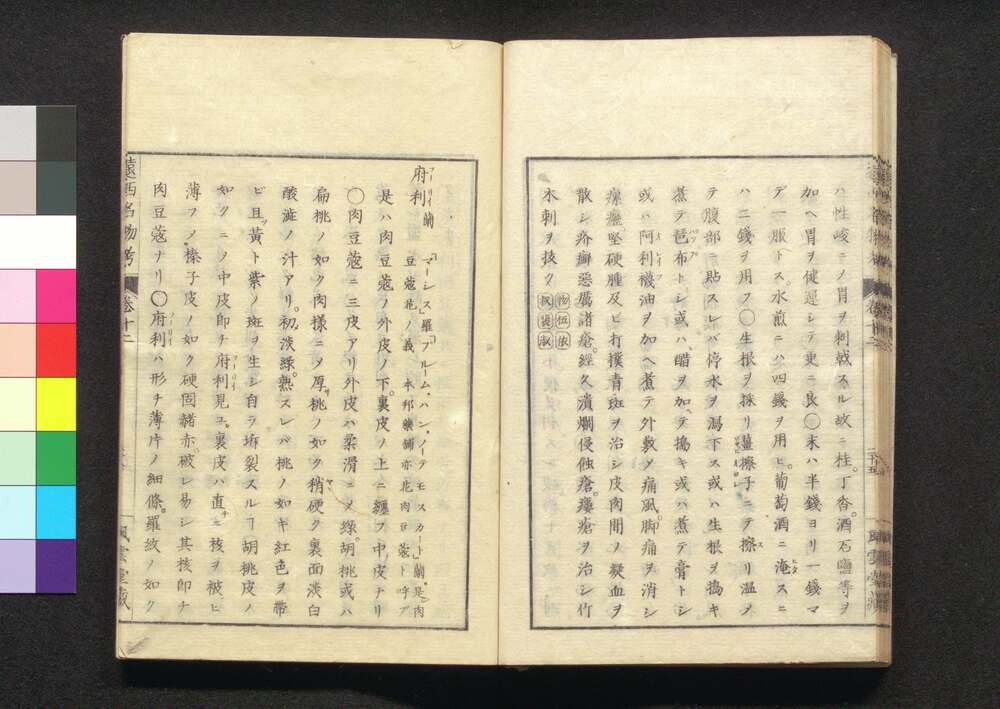 ハ性峻ニ〆胃ヲ刺戟スル故ニ桂。丁香。酒石鹽等ヲ
加ヘ胃ヲ健運シテ更ニ良〇末ハ半錢ヨリ一錢マ
デ一服トス。水煎ニハ四錢ヲ用ヒ。葡萄酒ニ淹スニ
ハ二錢ヲ用フ〇生根ヲ採リ薑擦子ニテ擦リ温メ
テ腹部ニ貼スレバ停水ヲ瀉下ス或ハ生根ヲ搗キ
煮テ琶布トシ或ハ醋ヲ加テ搗キ或ハ煮テ膏トシ
或ハ阿利襪油ヲ加ヘ煮テ外敷〆痛風脚痛ヲ消シ
瘰癧堅硬腫及ヒ打撲青斑ヲ治シ皮肉間ノ凝血ヲ
散シ疥癬惡厲諸瘡。經久潰爛侵蝕瘡。瘻瘡ヲ治シ竹
木刺ヲ抜ク
府利 蘭「フーリイ」「マーシス」羅「ブルーム、ハン、ノーテ モスカート」蘭。是肉
豆蔲花ノ義 本邦藥鋪亦花肉豆蔲ト呼ブ
是ハ肉豆蔲ノ外皮ノ下。裏皮ノ上ニ纏フ中皮ナリ
〇肉豆蔲ニ三皮アリ外皮ハ柔滑ニ〆綠。胡桃或ハ
扁桃ノ如ク肉樣ニ〆厚サ桃ノ如ク稍硬ク裏面淡白
酸澁ノ汁アリ。初淡綠。熟スレバ桃ノ如キ紅色ヲ帶
ビ且黃ト紫ノ斑ヲ生シ自ラ拆裂スルヿ胡桃皮ノ
如ク〆ノ中皮即チ府利見ユ。裏皮ハ直ニ核ヲ被ヒ
薄フ〆榛子皮ノ如ク硬固赭赤。破レ易シ其核即チ
肉豆蔲ナリ〇府利ハ形チ薄片ノ細條。羅紋ノ如ク
遠西名物考
卷十二
風雲堂藏